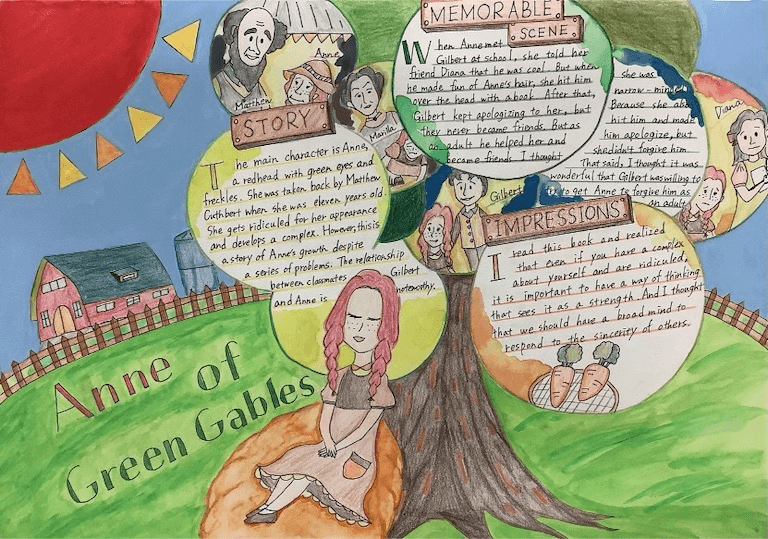 MEMORABLE
SCENE
When Anne met
Gilbert at school, she told her
friend Diana that he was cool. But when
he made fun of Anne's hair, she hit him
over the head with a book. After that,
Gilbert kept apologizing to her, but
they never became friends. But as
an adult he helped her and
became friends I thought
she was
narrow-minded
Because she also
hit him and made
him apologize, but
she didn't forgive him.
That said, I thought it was
wonderful that Gilbert was willing to
try to get Anne to forgive him as
an adult.
Anne
Matthew
Marilla
Diana
Gilbert
STORY
The main character is Anne,
a redhead with green eyes and
freckles. She was taken back by Matthew
Cuthbert when she was eleven years old
She gets ridiculed for her appearance
and develops a complex. However, this is
a story of Anne's growth despite
a series of problems. The relationship
between classmates Gilbert
and Anne is noteworthy.
IMPRESSIONS
I read this book and realized
that even if you have a complex
about yourself and are ridiculed,
it is important to have a way of thinking
that sees it as a strength. And I thought
that we should have a broad mind to
respond to the sincerity of others.
Anne of
Green Gables